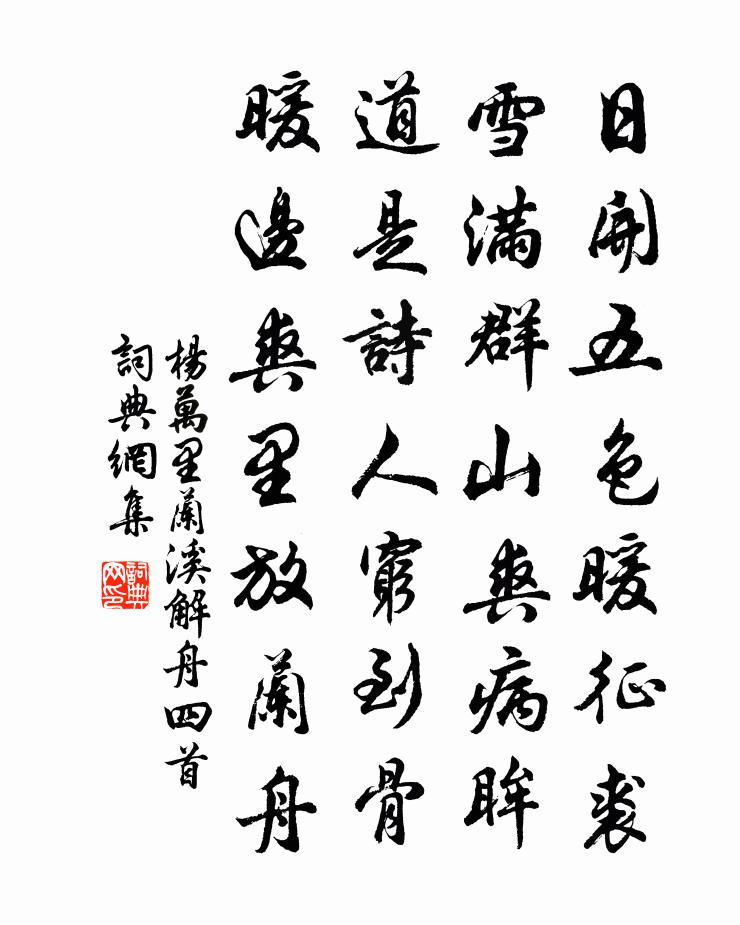 日開五色暖征裘
雪滿群山爽病眸
道是詩人窮到骨
暖邊爽里放蘭舟
楊萬里蘭溪解舟四首
詞典網集
詞典网印